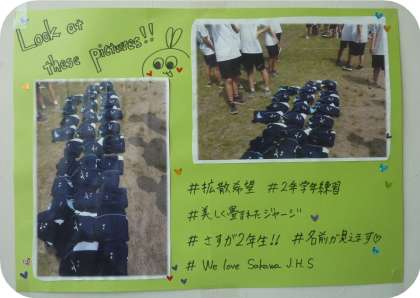 Look at
these pictures!!
#拡散希望 #2年学年練習
#美しく畳まれたジャージ
#さすが2年生!! #名前が見えます♡
# We love Sakawa J.H.S